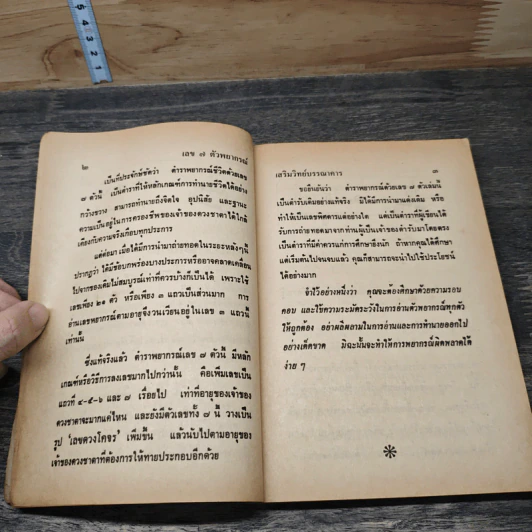 ๒
เลข ๗ ตัวพยากรณ์
เป็นที่ประจักษ์ชัดว่า ตำราพยากรณ์ชีวิตด้วยเลข
๗ ตัวนี้ เป็นตำราที่ให้หลักเกณฑ์การทำนายชีวิตได้อย่าง
กว้างขวาง สามารถทำนายถึงจิตใจ อุปนิสัย และฐานะ
ความเป็นอยู่ในการครองชีพของเจ้าของดวงชาตาได้ใกล้
เคียงกับความจริงเกือบทุกประการ
แต่ต่อมา เมื่อได้มีการนำมาถ่ายทอดในระยะหลังๆนี้
ปรากฏว่า ได้มีข้อบกพร่องบางประการหรืออาจคลาดเคลื่อน
ไปจากของเดิมไม่สมบูรณ์เท่าที่ควรบ้างก็เป็นได้ เพราะใช้
เลขเพียง ๒๑ ตัว หรือเพียง ๓ แถวเป็นส่วนมาก การ
อ่านเลขพยากรณ์ตามอายุจึงวนเวียนอยู่ในเลข ๓ แถวนี้
เท่านั้น
ซึ่งแท้จริงแล้ว ตำราพยากรณ์เลข ๗ ตัวนี้ มีหลัก
เกณฑ์หรือวิธีการลงเลขมากไปกว่านั้น คือเพิ่มเลขเป็น
แถวที่ ๔-๕-๖ และ ๗ เรื่อยไป เท่าที่อายุของเจ้าของ
ดวงชาตาจะมากแค่ไหน และยังมีตัวเลขทั้ง ๗ นี้ วางเป็น
รูป 'เลขดวงโคจร' เพิ่มขึ้น แล้วนับไปตามอายุของ
เจ้าของดวงชาตาที่ต้องการให้ทายประกอบอีกด้วย
เสริมวิทย์บรรณาคาร
๓
ขอยืนยันว่า ตำราพยากรณ์ด้วยเลข ๗ ตัวเล่มนี้
เป็นตำรับเดิมอย่างแท้จริง มิได้มีการนำมาแต่งเติม หรือ
ทำให้เป็นเลขพิศดารแต่อย่างใด แต่เป็นตำราที่ผู้เขียนได้
รับการถ่ายทอดมาจากท่านผู้เป็นเจ้าของตำรับมาโดยตรง
เป็นตำราที่มีค่าควรแก่การศึกษายิ่งนัก ถ้าหากคุณได้ศึกษา
แต่เริ่มต้นไปจนจบแล้ว คุณก็สามารถจะนำไปใช้ประโยชน์
ได้อย่างมาก
จำไว้อย่างหนึ่งว่า คุณจะต้องศึกษาด้วยความรอบ
คอบ และใช้ความระมัดระวังในการอ่านตัวพยากรณ์ทุกตัว
ให้ถูกต้อง อย่าผลีผลามในการอ่านและการทำนายออกไป
อย่างเด็ดขาด มิฉะนั้นจะทำให้การพยากรณ์ผิดพลาดได้
ง่าย ๆ
5
4
3
2